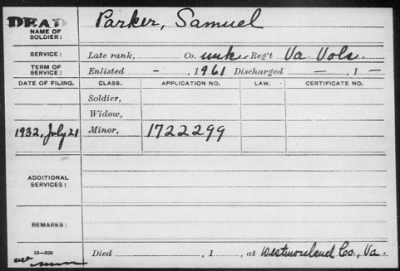 DEAD
Parker, Samuel
NAME OF SOLDIER:
SERVICE: Late rank, Co. unk Reg't Va. Vols.
TERM OF SERVICE: Enlisted - , 1961 Discharged — , 1 —
DATE OF FILING. CLASS. APPLICATION NO. LAW. CERTIFICATE NO.
Soldier,
Widow,
1932, July 21 Minor, 1722299
ADDITIONAL SERVICES:
REMARKS:
Died , 1 , at Westmoreland Co., Va.